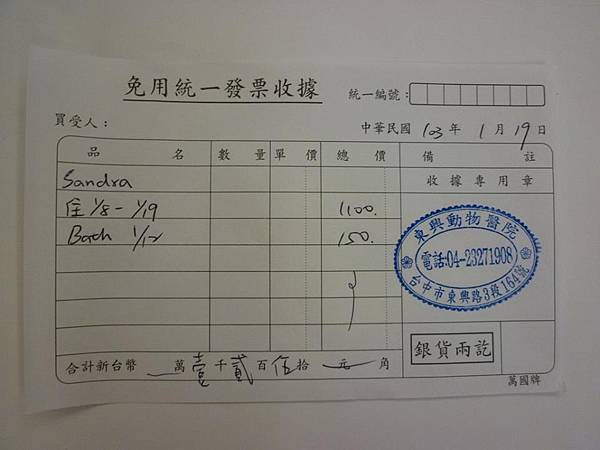 免用統一發票收據
統一編號：
買受人：
中華民國 103 年 1 月 19 日
品 名 數 量 單 價 總 價 備 註
收據專用章
Sandra
住 1/8 - 1/19 1100.
Bath 1/12 150.
東興動物醫院
電話:04-23271908
台中市東興路3段164號
銀貨兩訖
合計新台幣 萬 壹 千 貳 百 伍 拾 元 角
萬國牌